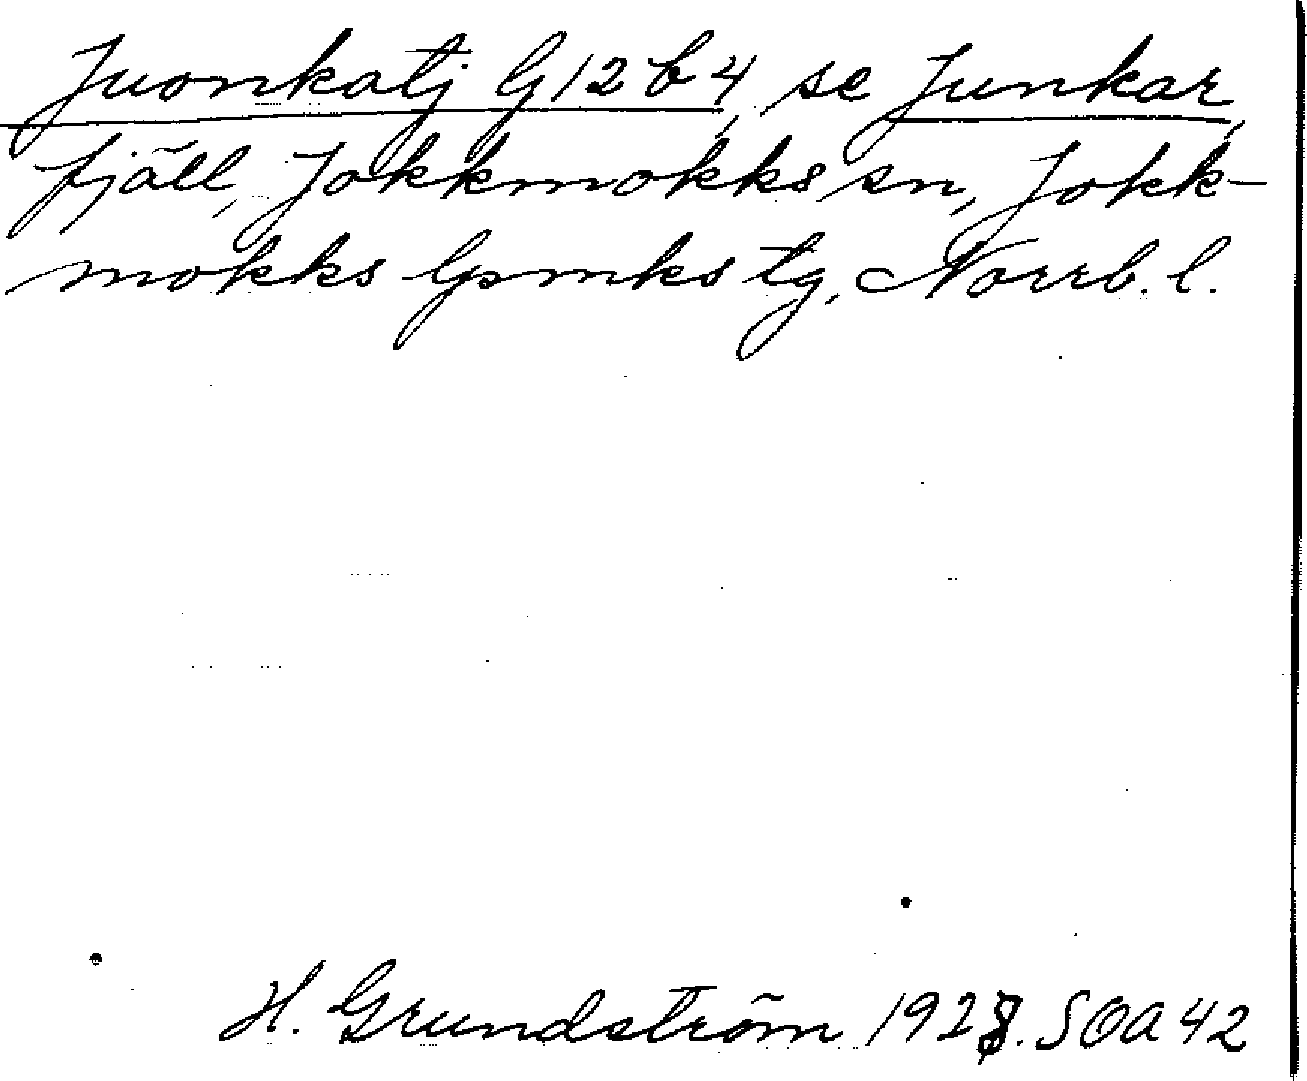 Juonkatj G12b4, se Junkar,
fjäll, Jokkmokks sn, Jokk-
mokks lpmks tg, Norrb. l.
H. Grundström 1928. SOA 42